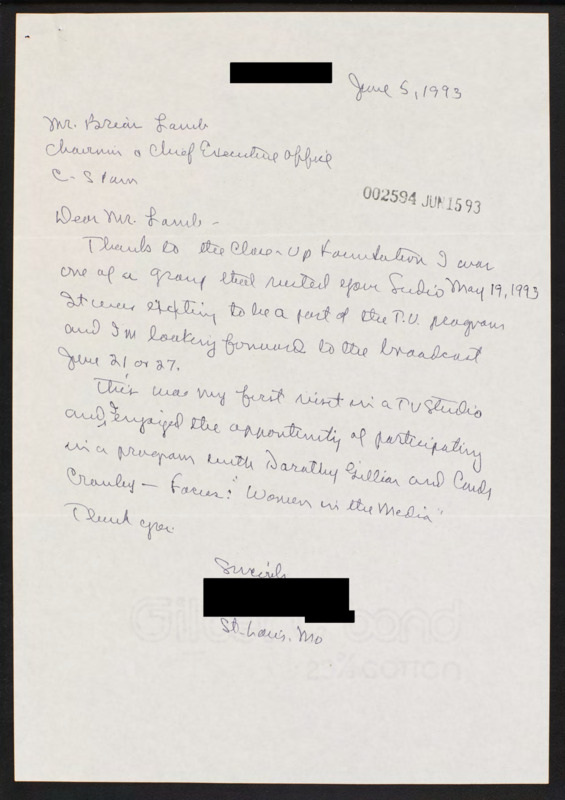 June 5, 1993
Mr. Brian Lamb
Chairmin & Chief Executive Office
C-Span
002594 JUN1593
Dear Mr. Lamb -
Thanks to the Close-Up Foundation I was
one of a group that visited your Sudio May 19, 1993
It was exciting to be a part of the T.V. program
and I'm looking forward to the broadcast
June 21 or 27.
This was my first visit in a TV Studio
and I enjoyed the opportunity of participating
in a program with Dorothy Gilliam and Candy
Crowley - Focus: "Women in the Media"
Thank you.
Sincerely
St. Louis, Mo
Bond
COTTON